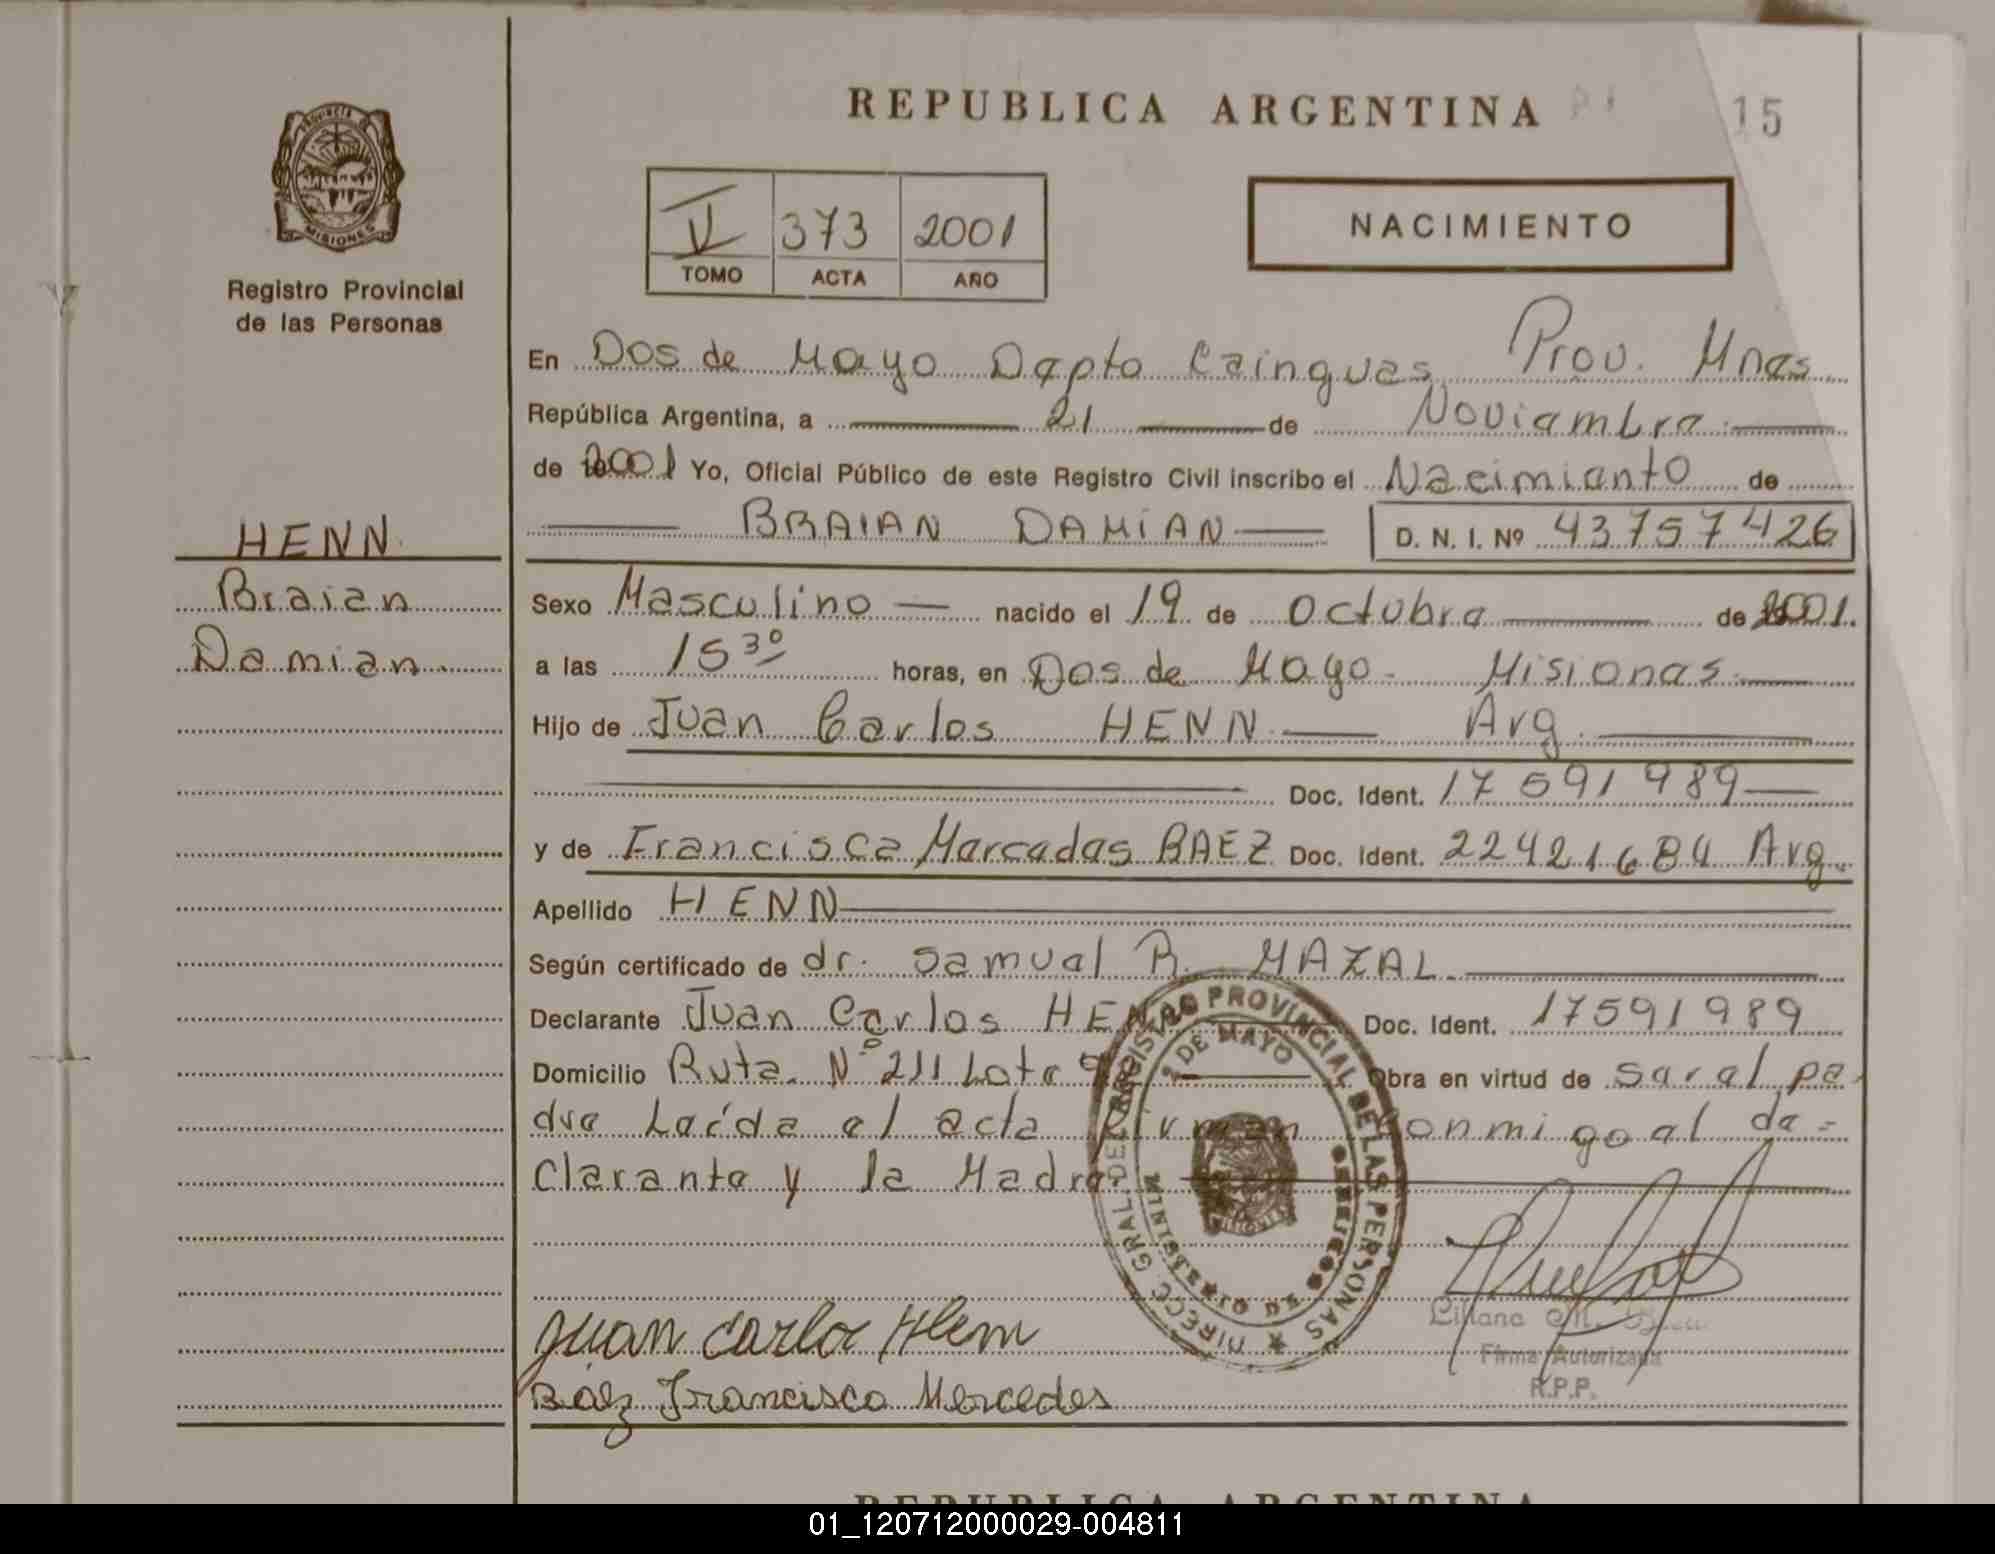 REPUBLICA ARGENTINA
15
PROVINCIA DE
MISIONES
Registro Provincial
de las Personas
II 373 2001
TOMO ACTA AÑO
NACIMIENTO
En Dos de Mayo Dapto Cainguas Prov. Mnas
República Argentina, a 21 de Noviambra
de 2001 Yo, Oficial Público de este Registro Civil inscribo el Nacimianto de
BRAIAN DAMIAN D. N. I. Nº 43757426
HENN
Braian
Damian
Sexo Masculino nacido el 19 de Octubra de 2001.
a las 15 30 horas, en Dos de Mayo - Misionas
Hijo de Juan Carlos HENN Arg.
Doc. Ident. 17 591 989
y de Francisca Marcadas BAEZ Doc. Ident. 22421684 Arg.
Apellido HENN
Según certificado de dr. Samual R. MAZAL
Declarante Juan Carlos HENN Doc. Ident. 17591989
Domicilio Ruta Nº 211 Lota 9 Obra en virtud de saral pa
dra Laída al acta Firman Conmigo al da=
claranta y la Madra.
DIRECC. GRAL. DEL REGISTRO PROVINCIAL DE LAS PERSONAS
2 DE MAYO
MINISTERIO DE
Juan Carlo Henn
Baez Francisca Mercedes
Liliana M.
Firma Autorizada
R.P.P.
REPUBLICA ARGENTINA
01_120712000029-004811